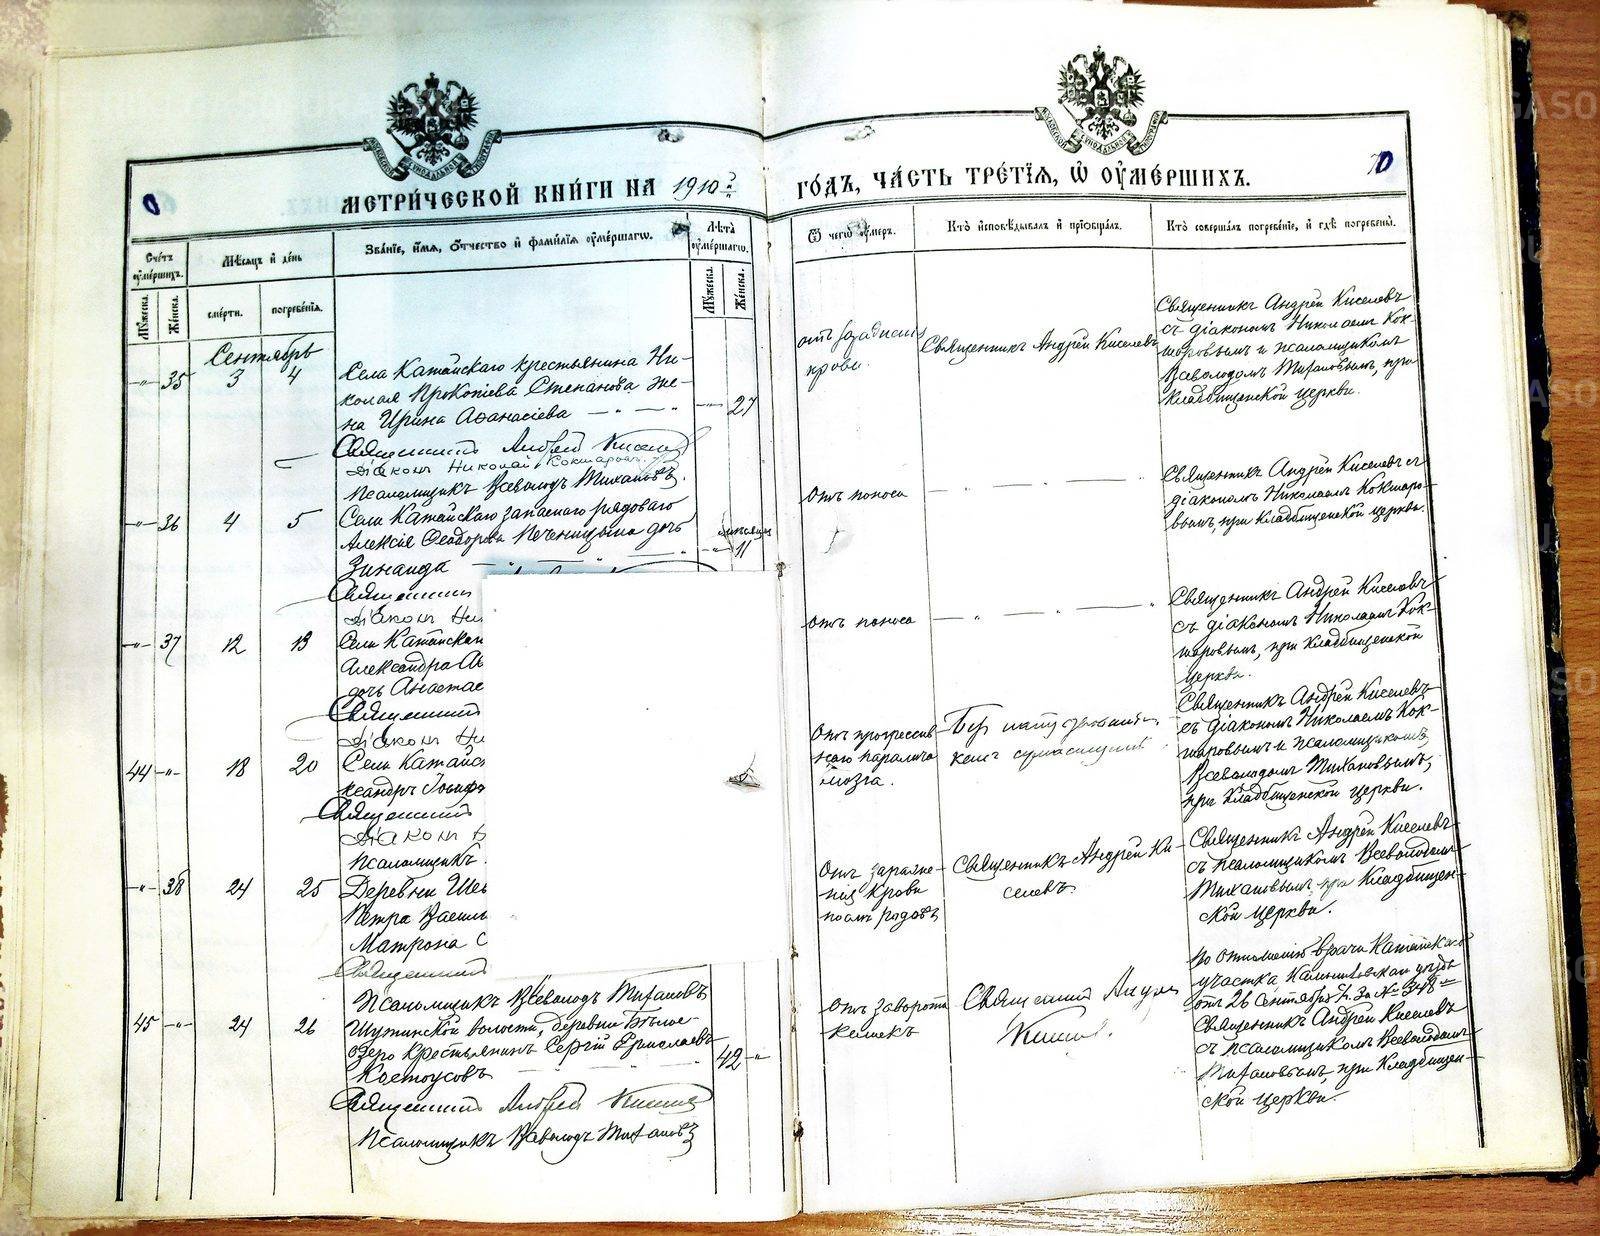 МЕТРИ́ЧЕСКОЙ КНИ́ГИ НА 1910 й
ГО́ДЪ, ЧА́СТЬ ТРЕ́ТЇЯ, Ѿ ОУМЕ́РШИХЪ.
0
10
Сче́тъ оуме́ршихъ.
Мѣ́сяцъ и де́нь
Зва́нїе, и́мя, о́тчество и фами́лїя оуме́ршагѡ.
Лѣ́та оуме́ршагѡ.
Ѿ чегѡ̀ оу́меръ.
Кто̀ исповѣ́дывалъ и прїобща́лъ.
Кто̀ соверша́лъ погребе́нїе, и гдѣ̀ погребены̀.
Му́жеска.
Же́нска.
сме́рти.
погребе́нїя.
Му́жеска.
Же́нска.
Сентябрь
-"- 35 3 4
Села Катайскаго крестьянина Ни-
колая Прокопіева Степанова же-
на Ирина Афанасіева -"-"-
-"- 27
Священникъ Андрей Киселевъ
Діаконъ Николай Кокшаровъ
Псаломщикъ Всеволодъ Тихановъ.
крови.
Священникъ Андрей Киселевъ
Священникъ Андрей Киселевъ
съ діакономъ Николаемъ Кок-
шаровымъ и псаломщикомъ
Всеволодомъ Тихановымъ, при
Кладбищенской церкви.
-"- 36 4 5
Села Катайскаго запаснаго рядоваго
Алексія Феодорова Печеницына дочь
Зинаида
-"- 11
Священникъ
Діаконъ Ни
Отъ поноса
Священникъ Андрей Киселевъ съ
діакономъ Николаемъ Кокшаро-
вымъ, при Кладбищенской церкви.
-"- 37 12 13
Села Катайскаго
Александра Ан
дочь Анастас
Священникъ
Діаконъ Ни
Отъ поноса
Священникъ Андрей Киселевъ
съ діакономъ Николаемъ Кок-
шаровымъ, при Кладбищенской
церкви.
44 -"- 18 20
Села Катайск
ксандръ Іосиф
Священникъ
Діаконъ Н
Псаломщикъ
Отъ прогрессив-
наго паралича
мозга.
Священникъ Андрей Киселевъ
съ діакономъ Николаемъ Кок-
шаровымъ и псаломщикомъ
Всеволодомъ Тихановымъ,
при Кладбищенской церкви.
-"- 38 24 25
Деревни Шев
Петра Василь
Матрона С
Священникъ
Псаломщикъ Всеволодъ Тихановъ
Отъ зараже-
нія крови
послѣ родовъ
Священникъ Андрей Ки-
селевъ
Священникъ Андрей Киселевъ
съ псаломщикомъ Всеволодомъ
Тихановымъ, при Кладбищен-
ской церкви.
45 -"- 24 26
Шутинской волости, деревни Бѣлое-
озеро крестьянинъ Сергій Ермолаевъ
Костоусовъ
42 -"-
Священникъ Андрей Киселевъ
Псаломщикъ Всеволодъ Тихановъ
Отъ заворота
кишекъ
Священникъ Андрей
Киселевъ
По отношенію врача Катайскаго
участка, Камышловскаго уѣзда
отъ 26 Сентября с.г. за № 348
Священникъ Андрей Киселевъ
съ псаломщикомъ Всеволодомъ
Тихановымъ, при Кладбищен-
ской церкви.